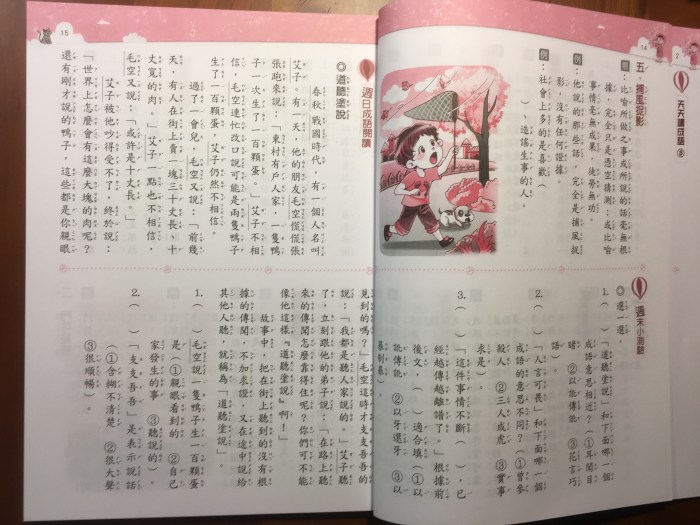 14
天天讀成語
五、捕風捉影
：比喻所做之事或所說的話毫無根
據，完全只是憑空猜測；或比喻
事情毫無成果，徒勞無功。
例：他說的那些話，完全是捕風捉
影，沒有任何證據。
：社會上多的是喜歡（
）、造謠生事的人。
週末小測驗
◎選一選。
1.（ ）「道聽塗說」和下面哪一個
成語意思相近？（①耳聞目
睹 ②以訛傳訛 ③花言巧
語）
2.（ ）「人言可畏」和下面哪一個
成語的意思不同？（①曾參
殺人 ②三人成虎 ③實事
求是）。
3.（ ）「這件事情不斷（ ），已
經越傳越離譜了。」根據前
後文，（ ）適合填（①以
訛傳訛 ②以牙還牙 ③以
暴制暴）。
15
週日成語閱讀
◎道聽塗說
春秋戰國時代，有一個人名叫
艾子。有一天，他的朋友毛空慌慌張
張跑來說：「東村有戶人家，一隻鴨
子一次生了一百顆蛋。」艾子不相
信，毛空連忙改口說可能是兩隻鴨子
生了一百顆蛋，艾子仍然不相信。
過了一會兒，毛空又說：「前幾
天，有人在街上賣一塊三十丈長、十
丈寬的肉。」艾子一點也不相信，
毛空又說：「或許是十丈長。」
艾子被他吵得受不了，終於說：
「世界上怎麼會有這麼大塊的肉呢？
還有剛才說的鴨子，這些都是你親眼
見到的嗎？」毛空這時才支支吾吾的
說：「我都是聽人家說的。」艾子聽
了，立刻跟他的弟子說：「在路上聽
來的傳聞怎麼靠得住呢？你們可不能
像他這樣『道聽塗說』啊！」
故事中，把在街上聽到的沒有根
據的傳聞，不加求證，又在途中說給
其他人聽，就稱為「道聽塗說」。
1.（ ）毛空說一隻鴨子生一百顆蛋
是（①親眼看到的 ②自己
家發生的事 ③聽說的）。
2.（ ）「支支吾吾」是表示說話
（①含糊不清楚 ②很大聲
③很順暢）。